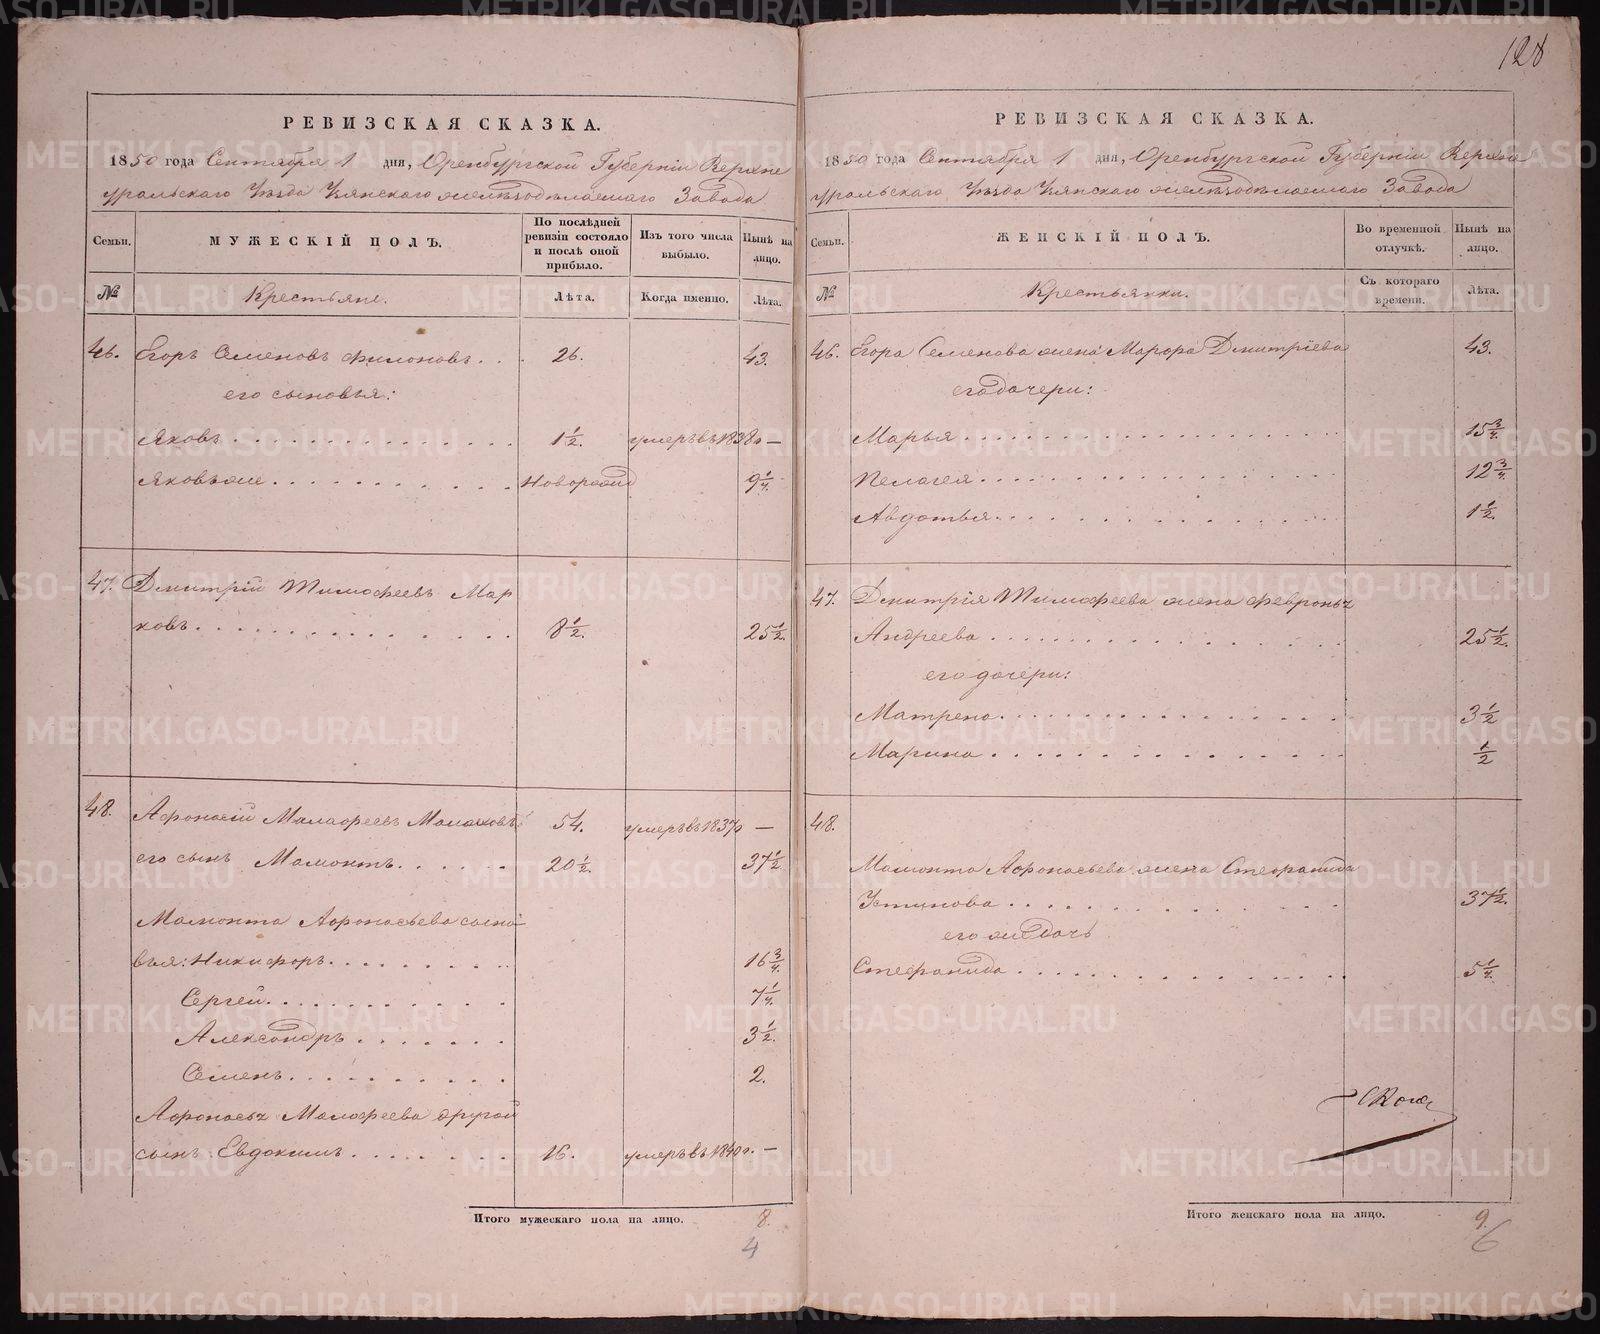 128
РЕВИЗСКАЯ СКАЗКА.
1850 года Сентября 1 дня, Оренбургской Губерніи Верхне
уральскаго Уѣзда Узянскаго желѣзодѣлаемаго Завода
Семьи.
МУЖЕСКІЙ ПОЛЪ.
По послѣдней ревизіи состояло и послѣ оной прибыло.
Изъ того числа выбыло.
Нынѣ на лицо.
№
Крестьяне.
Лѣта.
Когда именно.
Лѣта.
46. Егоръ Семеновъ Филоновъ . . . 26. 43.
его сыновья:
Яковъ . . . 1 1/2. умеръ въ 1838 г —
Яковъ же . . . Новорожд 9 1/4.
47. Дмитрій Тимофеевъ Мар
ковъ . . . 8 1/2. 25 1/2.
48. Афонасій Малафеевъ 54. умеръ въ 1837 г —
его сынъ Мамонтъ . . . 20 1/2. 37 1/2.
Мамонта Афонасьева сыно
вья: Никифоръ . . . 16 3/4.
Сергей . . . 7 1/4.
Александръ . . . 3 1/2.
Семенъ . . . 2.
Афонасья Малофеева другой
сынъ Евдокимъ . . . 16. умеръ въ 1840 г. —
Итого мужескаго пола на лицо. 8.
4
РЕВИЗСКАЯ СКАЗКА.
1850 года Сентября 1 дня, Оренбургской Губерніи Верхне
уральскаго Уѣзда Узянскаго желѣзодѣлаемаго Завода
Семьи.
ЖЕНСКІЙ ПОЛЪ.
Во временной отлучкѣ.
Нынѣ на лицо.
№
Крестьянки.
Съ котораго времени.
Лѣта.
46. Егора Семенова жена Марфа Дмитріева 43.
его дочери:
Марья . . . 15 3/4.
Пелагея . . . 12 3/4.
Авдотья . . . 1 1/2.
47. Дмитрія Тимофеева жена Февронья
Андреева . . . 25 1/2.
его дочери:
Матрена . . . 3 1/2
Марина . . . 1/2
48.
Мамонта Афонасьева жена Стефанида
Устинова . . . 37 1/2.
его же дочь
Стефанида . . . 5 1/4.
Итого женскаго пола на лицо. 9.
6
METRIKI.GASO-URAL.RU